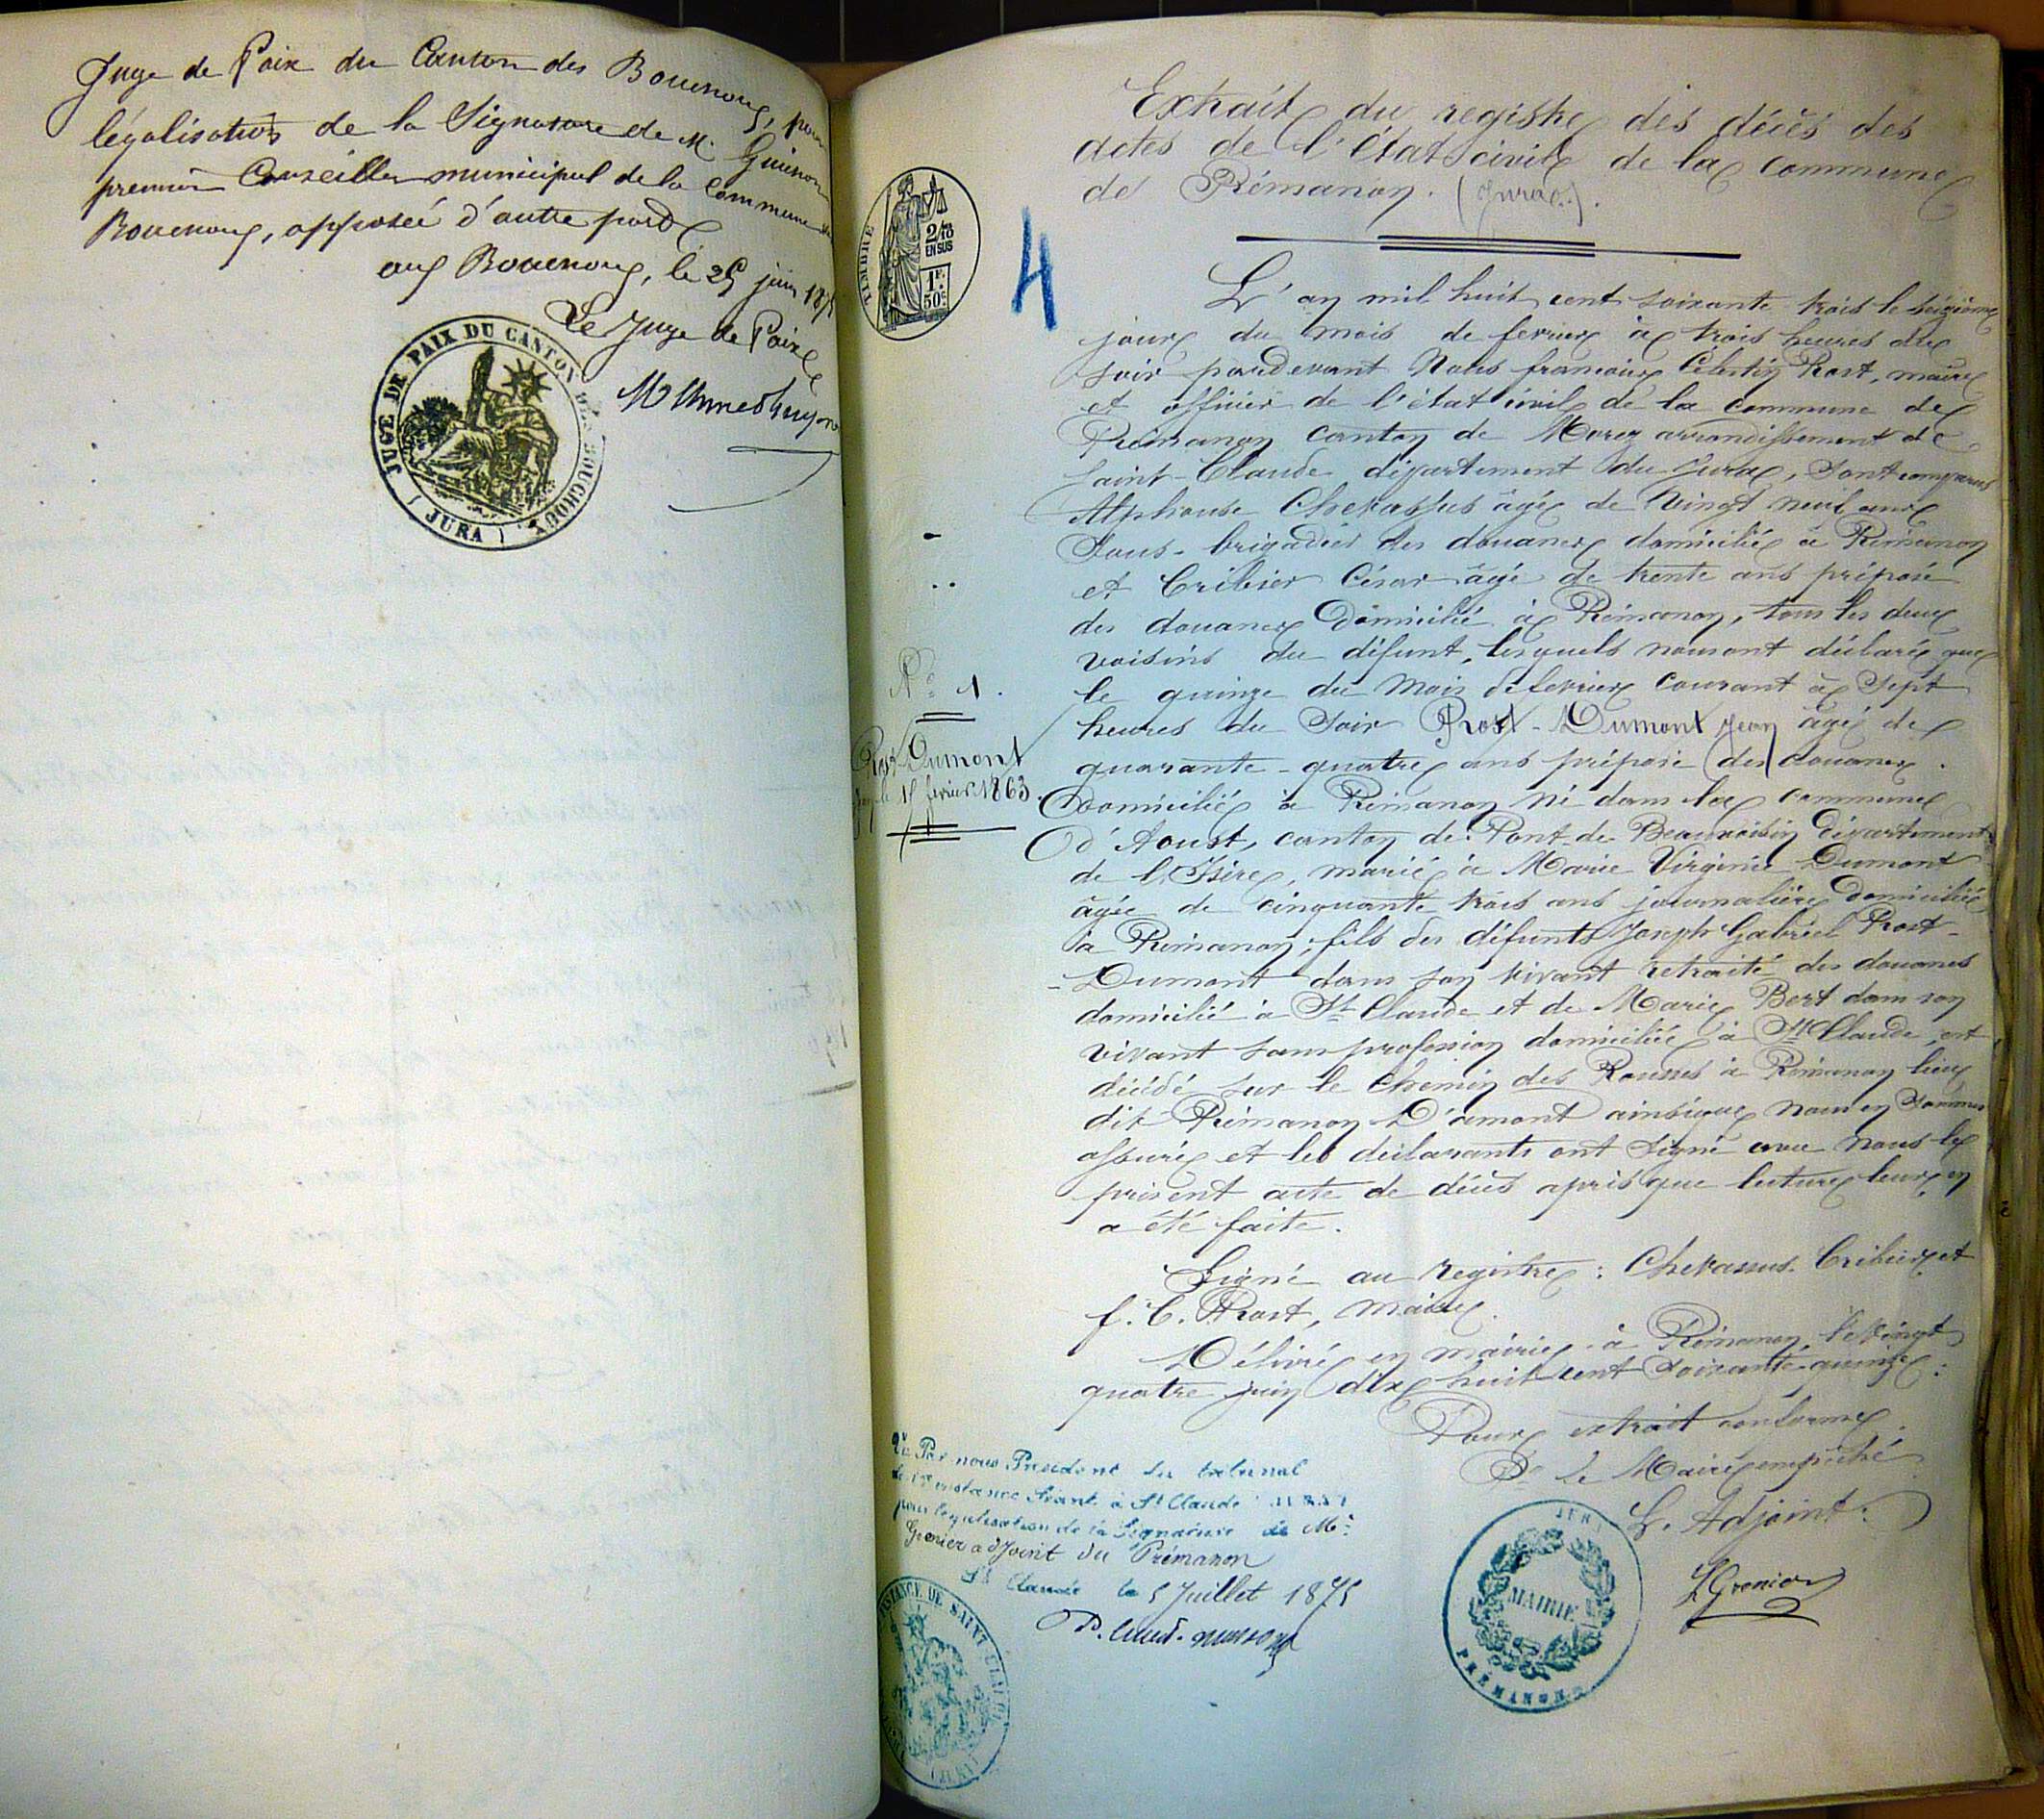 Juge de Paix du Canton des Bouchoux, pour
légalisation de la Signature de M. Guichon
premier Conseiller municipal de la Commune des
Bouchoux, apposée d'autre part
aux Bouchoux, le 25 juin 1875
Le Juge de Paix
JUGE DE PAIX DU CANTON DES BOUCHOUX
( JURA )
Extrait du registre des décès des
actes de l'État civil de la commune
de Prémanon. (Jura).
TIMBRE
2/10
EN SUS
1F.
50c
4
L'an mil huit cent soixante trois le seizième
jour du mois de fevrier à trois heures du
soir pardevant Nous francois Célestin Prost, maire
et officier de l'état civil de la commune de
Prémanon canton de Morez arrondissement de
saint-Claude département du Jura, sont comparus
Alphonse Chevassus âgé de Vingt neuf ans
Sous-brigadier des douanes domicilié à Prémanon
et Cribier César âgé de trente ans préposé
des douanes Domicilié à Prémanon, tous les deux
voisins du défunt, lesquels nous ont déclaré que
le quinze du Mois de fevrier courant à Sept
heures du Soir Prost-Dumont Jean âgé de
quarante-quatre ans préposé des douanes
Domicilié à Prémanon né dans la commune
d'Aoust, canton de Pont-de-Beauvoisin Département
de l'Isère, marié à Marie Virginie Dumont
âgée de cinquante trois ans journalière Domiciliée
à Prémanon, fils des défunts Joseph Gabriel Prost-
-Dumont dans son vivant retraité des douanes
domicilié à St Claude et de Marie Bert dans son
vivant sans profession domiciliée à St Claude, est
décédé sur le Chemin des Rousses à Prémanon lieu
dit Prémanon D'amont ainsi que nous en sommes
assuré et les déclarants ont signé avec nous le
présent acte de décès après que lecture leur en
a été faite.
Signé au registre : Chevassus. Cribier et
f. C. Prost, maire.
Délivré en mairie à Prémanon, le vingt
quatre juin dix huit cent soixante-quinze :
Pour extrait conforme
Pr le Maire empêché
L'Adjoint :
L Grenier
No 1.
Prost Dumont
Jean le 15 fevrier 1863.
Vu Par nous Président du tribunal
de 1re instance Séant à St Claude
pour légalisation de la Signature de Mr
Grenier adjoint du Prémanon
St Claude le 5 Juillet 1875
INSTANCE DE SAINT CLAUDE
(JURA)
JURA
MAIRIE
PRÉMANON